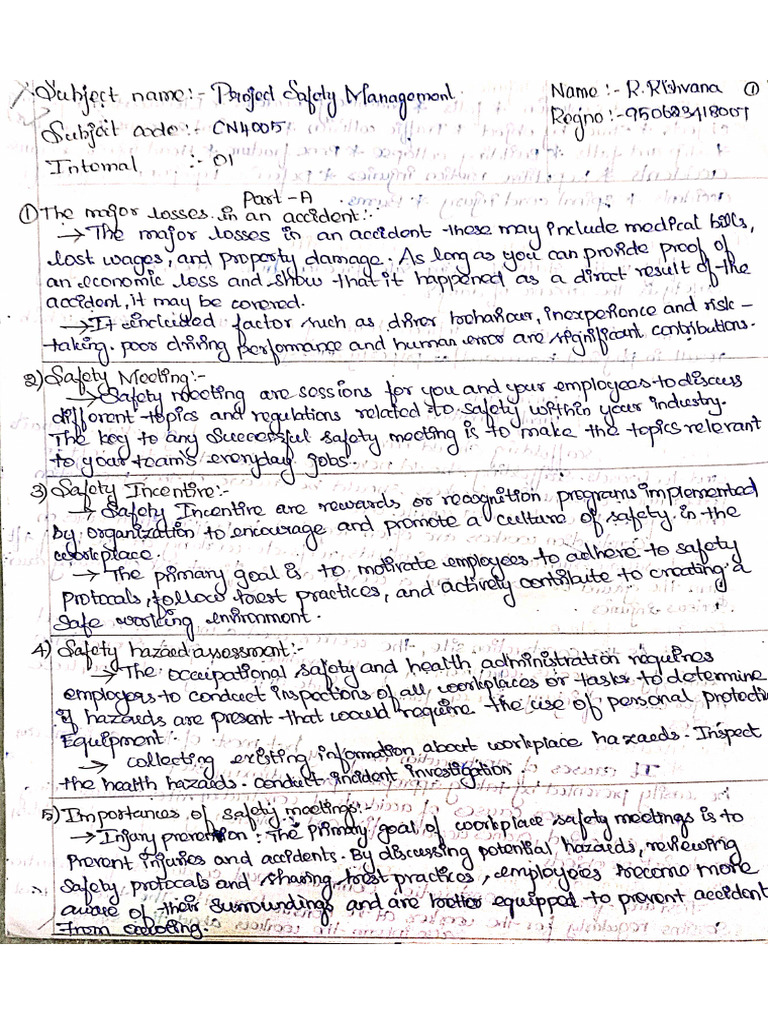 Subject name:- Project Safety Management.
Name :- R. Rishvana ①
Subject code :- CN4005
Regno :- 950623418007
Internal :- 01
Part -A
① The major losses in an accident:-
→ The major losses in an accident these may include medical bills,
lost wages, and property damage. As long as you can provide proof of
an economic loss and show that it happened as a direct result of the
accident, it may be covered.
→ It included factor such as driver behaviour, inexperience and risk -
taking. poor driving performance and human error are significant contributions.
2) Safety Meeting:-
→ Safety meeting are sessions for you and your employees to discuss
different topics and regulations related to safety within your industry.
The key to any successful safety meeting is to make the topics relevant
to your team's everyday jobs
3) Safety Incentive:-
→ Safety Incentive are rewards or recognition programs implemented
by organization to encourage and promote a culture of safety in the
workplace.
→ The primary goal is to motivate employees to adhere to safety
protocals, follow best practices, and actively contribute to creating a
safe working environment.
4) Safety hazaed assessment:-
→ The occupational safety and health administration requires
employers to conduct inspections of all workplaces or tasks to determine
if hazaeds are present that would require the use of personal protectiv
Equipment.
→ collecting existing information about workplace hazaeds. Inspect
the health hazaeds. conduct incident investigation.
5) Importances of safety meetings:-
→ Injury prevention : The primary goal of workplace safety meetings is to
prevent injuries and accidents. By discussing potential hazaeds, reviewing
safety protocals and sharing best practices, employees become more
aware of their surroundings and are better equipped to prevent accident
from